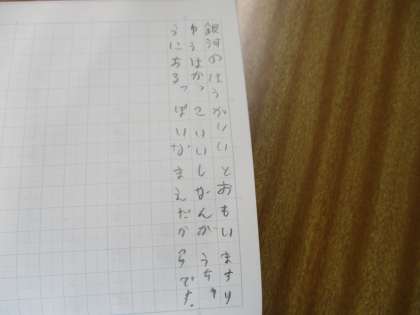 銀河のほうがいいとおもいますり
ゆうはかっこいいしなんかうちゅ
うにあるっぽいなまえだからです。